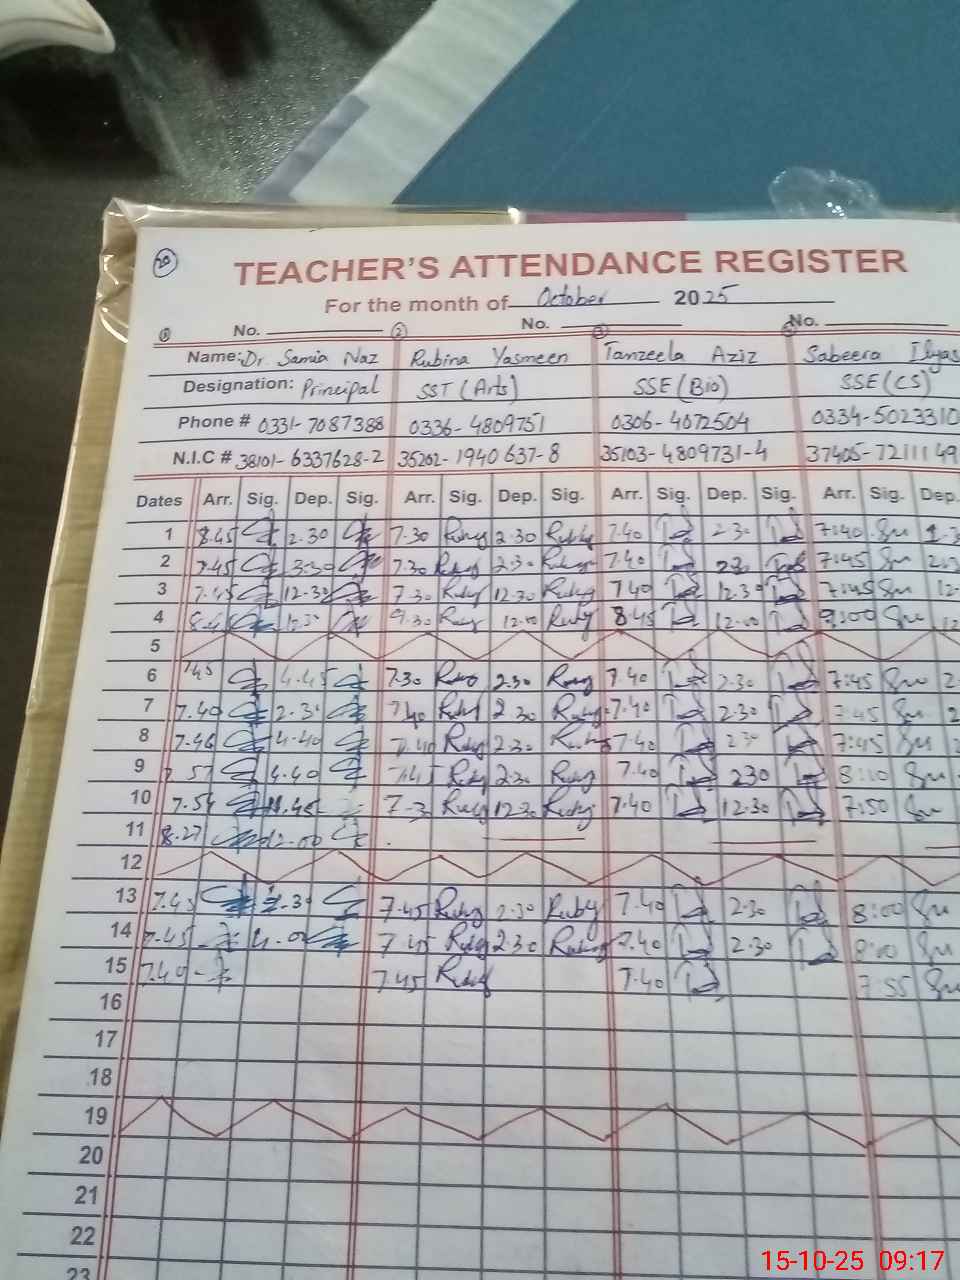 20
TEACHER'S ATTENDANCE REGISTER
For the month of October 2025
1 No. 2 No. 3 No.
Name: Dr. Samia Naz Rubina Yasmeen Tanzeela Aziz Sabeera Ilyas
Designation: Principal SST (Arts) SSE (Bio) SSE (CS)
Phone # 0331-7087388 0336-4809751 0306-4072504 0334-5023310
N.I.C # 38101-6337628-2 35202-1940637-8 35103-4809731-4 37405-7211149
Dates Arr. Sig. Dep. Sig. Arr. Sig. Dep. Sig. Arr. Sig. Dep. Sig. Arr. Sig. Dep.
1 8.45 2.30 7.30 Ruby 2.30 Ruby 7.40 2.30 7:40
2 7.45 3.30 7.30 Ruby 2.30 Ruby 7.40 2.30 7:45
3 7.45 12.30 7.30 Ruby 12.30 Ruby 7.40 12.30 7:45 12-
4 9.30 Ruby 12.00 Ruby 8.45 12.00 9:00 12
5
6 7.45 4.45 7.30 Ruby 2.30 Ruby 7.40 2.30 7:45 2
7 7.40 2.30 7.40 Ruby 2.30 Ruby 7.40 2.30 7:45 2
8 7.46 4.40 7.40 Ruby 2.30 Ruby 7.40 2.30 7:45
9 4.40 7.45 Ruby 2.30 Ruby 7.40 230 8:10
10 7.54 7.3 Ruby 12.30 Ruby 7.40 12.30 7:50
11 8.27 12.00
12
13 7.45 7.45 Ruby 2.30 Ruby 7.40 2.30 8:00
14 7.45 4.00 7.45 Ruby 2.30 Ruby 7.40 2.30 8:00
15 7.40 7.45 Ruby 7.40 7:55
16
17
18
19
20
21
22
23
15-10-25 09:17